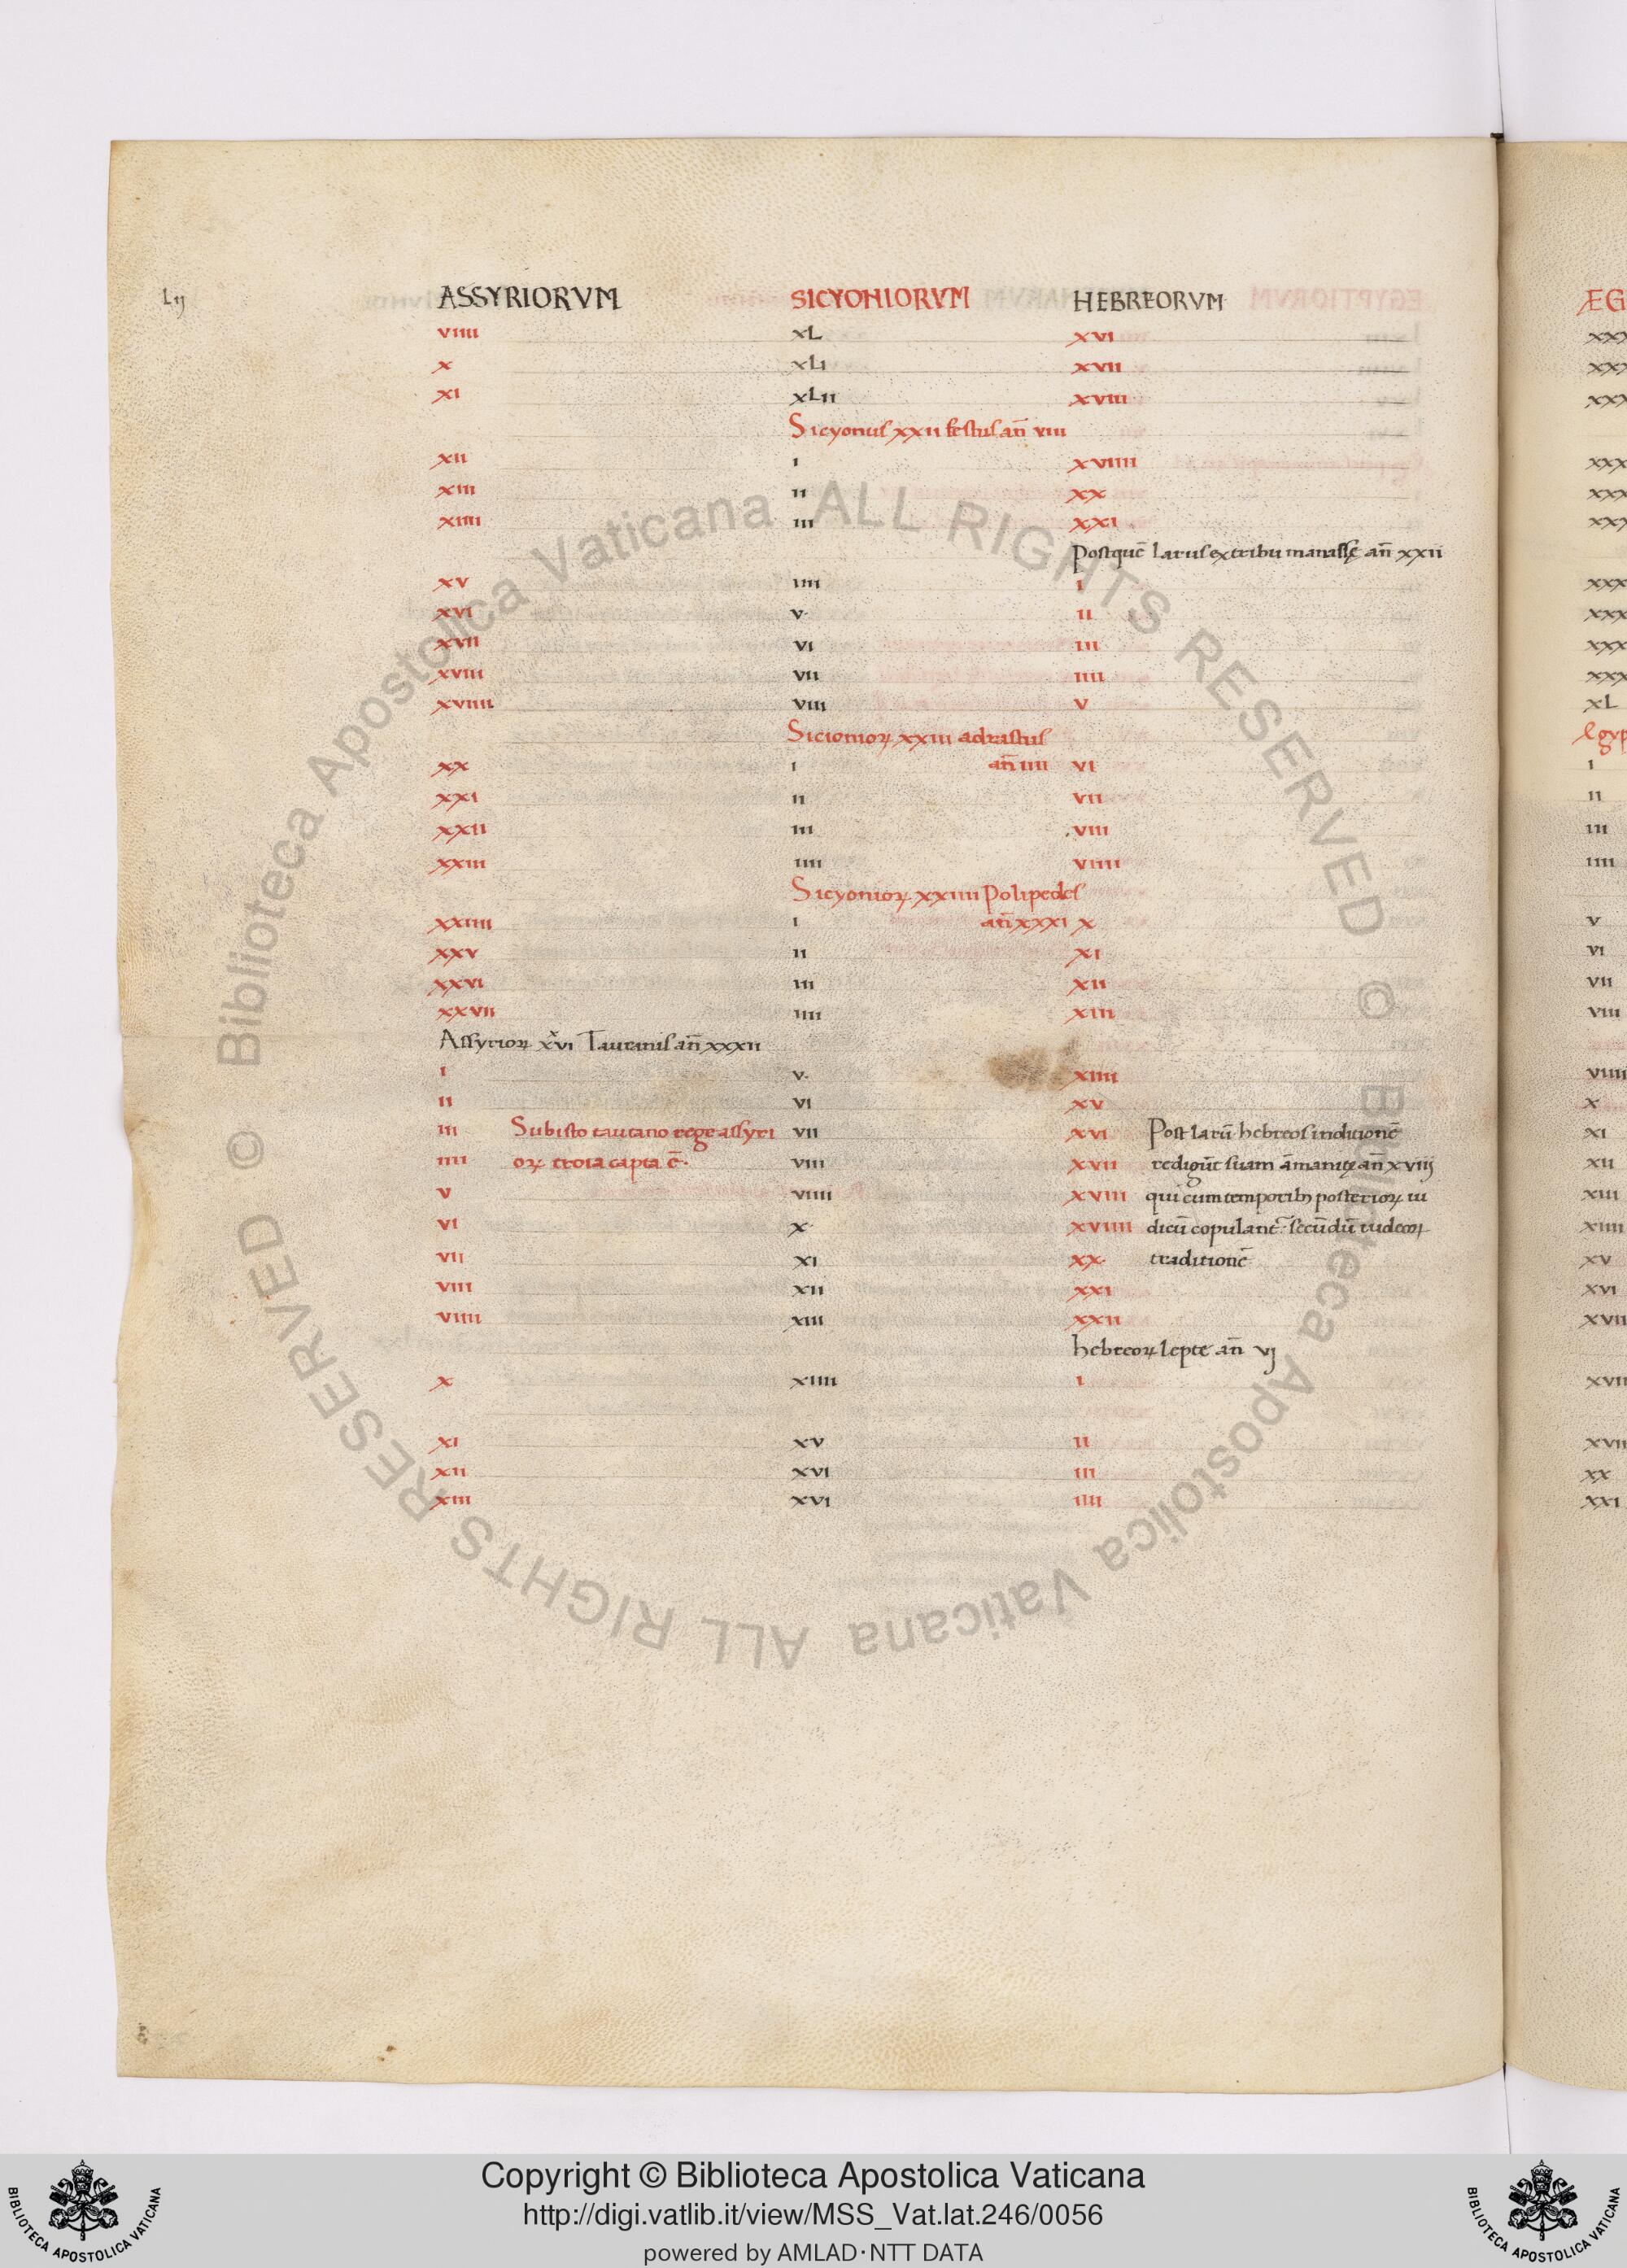 Lij
ASSYRIORVM SICYONIORVM HEBREORVM ÆG
VIIII XL XVI XXX
X XLI XVII XXX
XI XLII XVIII XXX
Sicyonus XXII festus an̄ VIII
XII I XVIIII XXX
XIII II XX XXX
XIIII III XXI XXX
Postquē Iarus ex tribu manassę an̄ XXII
XV IIII I XXX
XVI V II XXX
XVII VI III XXX
XVIII VII IIII XXX
XVIIII VIII V XL
Sicionioꝝ XXIII adrastus Egyp
XX I an̄ IIII VI I
XXI II VII II
XXII III VIII III
XXIII IIII VIIII IIII
Sicyonioꝝ XXIIII Polipedes
XXIIII I an̄ XXXI X V
XXV II XI VI
XXVI III XII VII
XXVII IIII XIII VIII
Assyrioꝝ XVI Tautanis an̄ XXXII
I V XIIII VIIII
II VI XV X
III Sub isto tautano rege assyri VII XVI Post Iarū hebreos in ditionē XI
IIII oꝝ troia capta ē VIII XVII redigūt suam āmanitę an̄ XVIIJ XII
V VIIII XVIII qui cum temporibꝫ posterioꝝ iu XIII
VI X XVIIII dicū copulant̄ secūdū iudeoꝝ XIIII
VII XI XX traditionē XV
VIII XII XXI XVI
VIIII XIII XXII XVII
hebreoꝝ Iepte an̄ VJ
X XIIII I XVII
XI XV II XVII
XII XVI III XX
XIII XVI IIII XXI
© Biblioteca Apostolica Vaticana ALL RIGHTS RESERVED
© Biblioteca Apostolica Vaticana ALL RIGHTS RESERVED
Copyright © Biblioteca Apostolica Vaticana
http://digi.vatlib.it/view/MSS_Vat.lat.246/0056
powered by AMLAD·NTT DATA
BIBLIOTECA APOSTOLICA VATICANA
BIBLIOTECA APOSTOLICA VATICANA